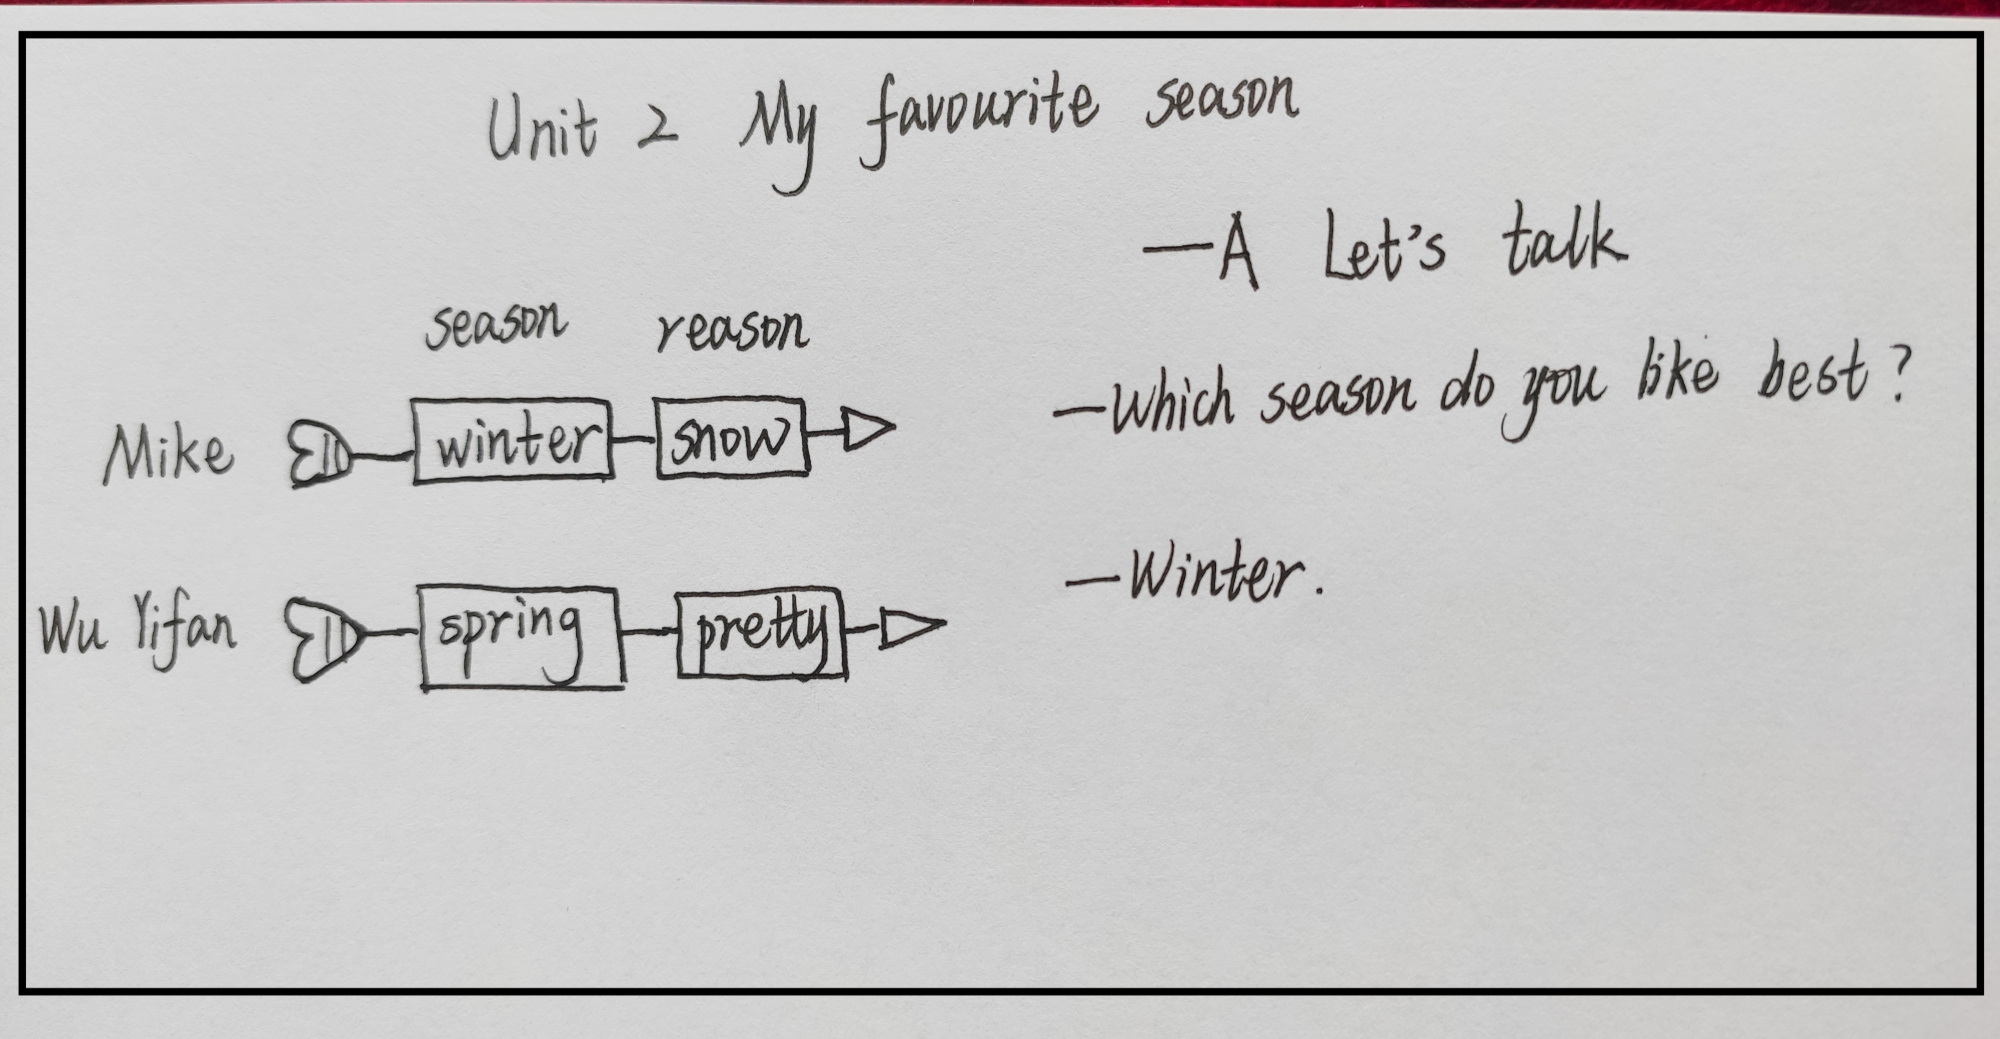 Unit 2 My favourite season
—A Let's talk
season reason
Mike winter snow
Wu Yifan spring pretty
—Which season do you like best?
—Winter.